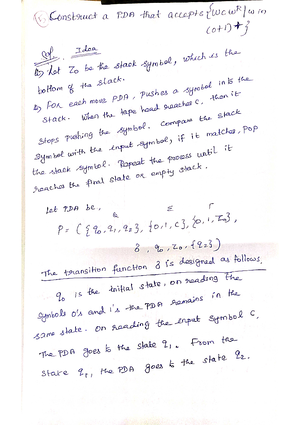 Construct a PDA that accepts {wcwᴿ | w in
(0+1)+}
Sol Idea
1) Let Z0 be the stack symbol, which is the
bottom of the stack.
2) For each move PDA, pushes a symbol into the
stack. When the tape head reaches C. than it
stops pushing the symbol. Compare the stack
symbol with the input symbol, if it matches, pop
the stack symbol. Repeat the process until it
reaches the final state or empty stack.
Let PDA be,
Q Σ Γ
P = ({q0, q1, q2}, {0, 1, c}, {0, 1, Z0},
δ, q0, Z0, {q2})
The transition function δ is designed as follows,
q0 is the initial state, on reading the
symbols 0's and 1's the PDA remains in the
same state. On reading the input symbol C,
the PDA goes to the state q1. From the
state q1, the PDA goes to the state q2.